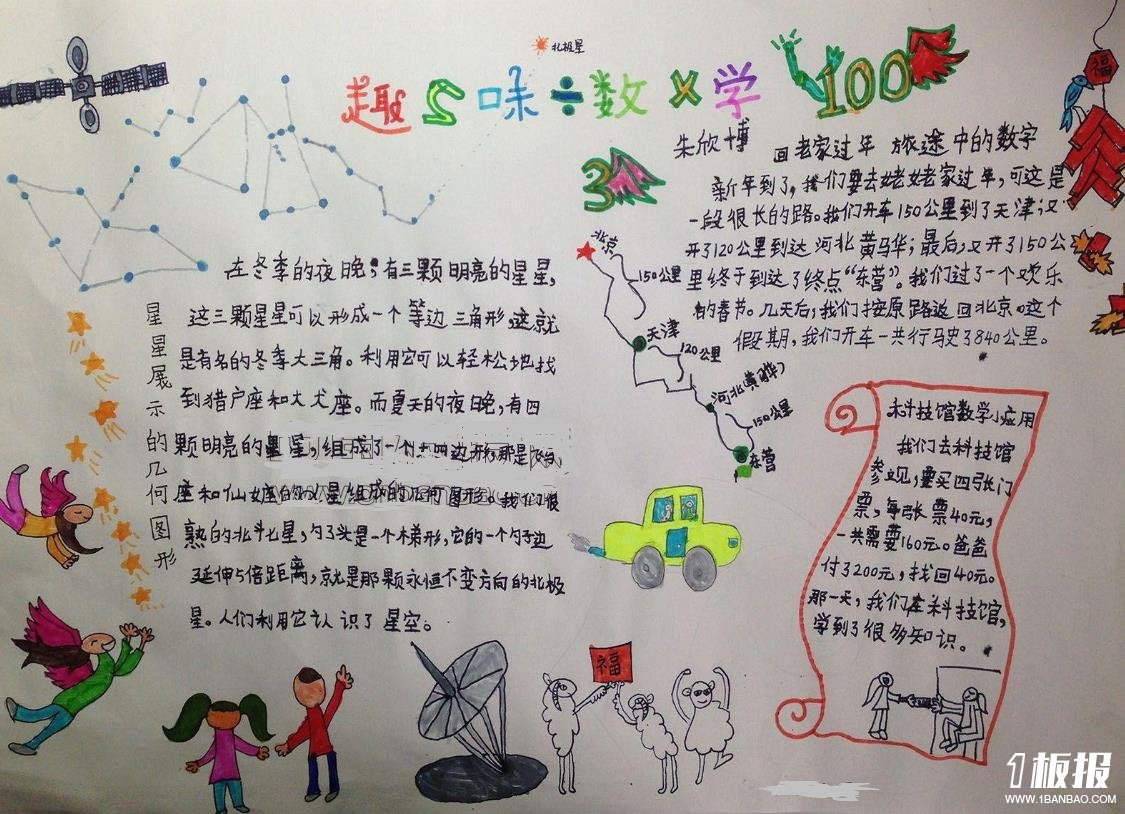 北极星
趣2味÷数×学 100
朱欣博
3
福
回老家过年 旅途中的数字
新年到了,我们要去姥姥家过年,可这是
一段很长的路。我们开车150公里到了天津,又
开了120公里到达河北黄马华;最后,又开了150公
里终于到达了终点“东营”。我们过了一个欢乐
的春节。几天后,我们按原路返回北京。这个
假期,我们开车一共行马史3840公里。
北京
150公里
天津
120公里
河北(黄骅)
150公里
东营
星星展示的几何图形
在冬季的夜晚,有三颗明亮的星星,
这三颗星星可以形成一个等边三角形。这就
是有名的冬季大三角。利用它可以轻松地找
到猎户座和大犬座。而夏天的夜晚,有四
颗明亮的星星,组成了一个四边形,那是
座和仙女座的星组成的几何图形。我们很
熟的北斗七星,勺子头是一个梯形,它的一个勺子边
延伸5倍距离,就是那颗永恒不变方向的北极
星。人们利用它认识了星空。
科技馆数学小应用
我们去科技馆
参观,要买四张门
票,每张票40元,
一共需要160元。爸爸
付了200元,找回40元。
那一天,我们在科技馆,
学到了很多知识。
福
1板报
WWW.1BANBAO.COM